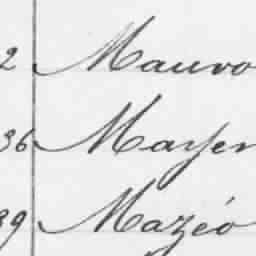 2 Mauro
36 Mayer
39 Mazéo